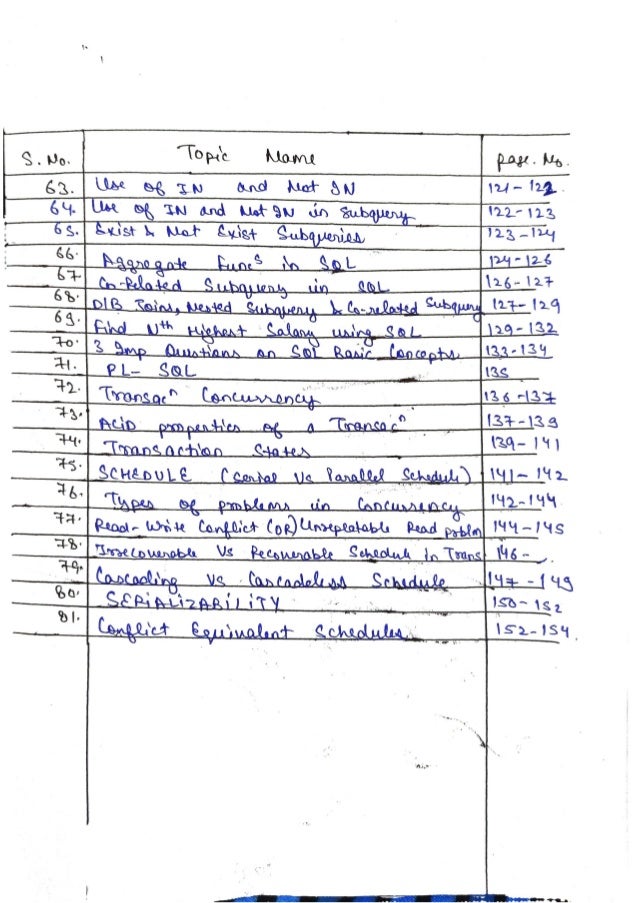 S. No. Topic Name page. No.
63. Use of IN and Not IN 121-122.
64. Use of IN and Not IN in Subquery 122-123
65. Exist & Not Exist Subqueries 123-124
66. Aggregate Funcs in SQL 124-126
67. Co-Related Subquery in SQL 126-127
68. D/B Joins, Nested Subquery & Co-related Subquery 127-129
69. Find Nth Highest Salary using SQL 129-132
70. 3 Imp Questions on SQL Basic Concepts 133-134
71. PL- SQL 135
72. Transacn Concurrency 136-137
73. ACiD properties of a Transacn 137-139
74. Transaction States 139-141
75. SCHEDULE (Serial Vs Parallel Schedule) 141-142
76. Types of problems in Concurrency 142-144
77. Read-Write Conflict (OR) Unrepeatable Read problm 144-145
78. Irrecoverable Vs Recoverable Schedule in Trans 146 -
79. Cascading Vs Cascadeless Schedule 147-149
80. SERiALiZABiLiTY 150-152
81. Conflict Equivalent Schedules 152-154.